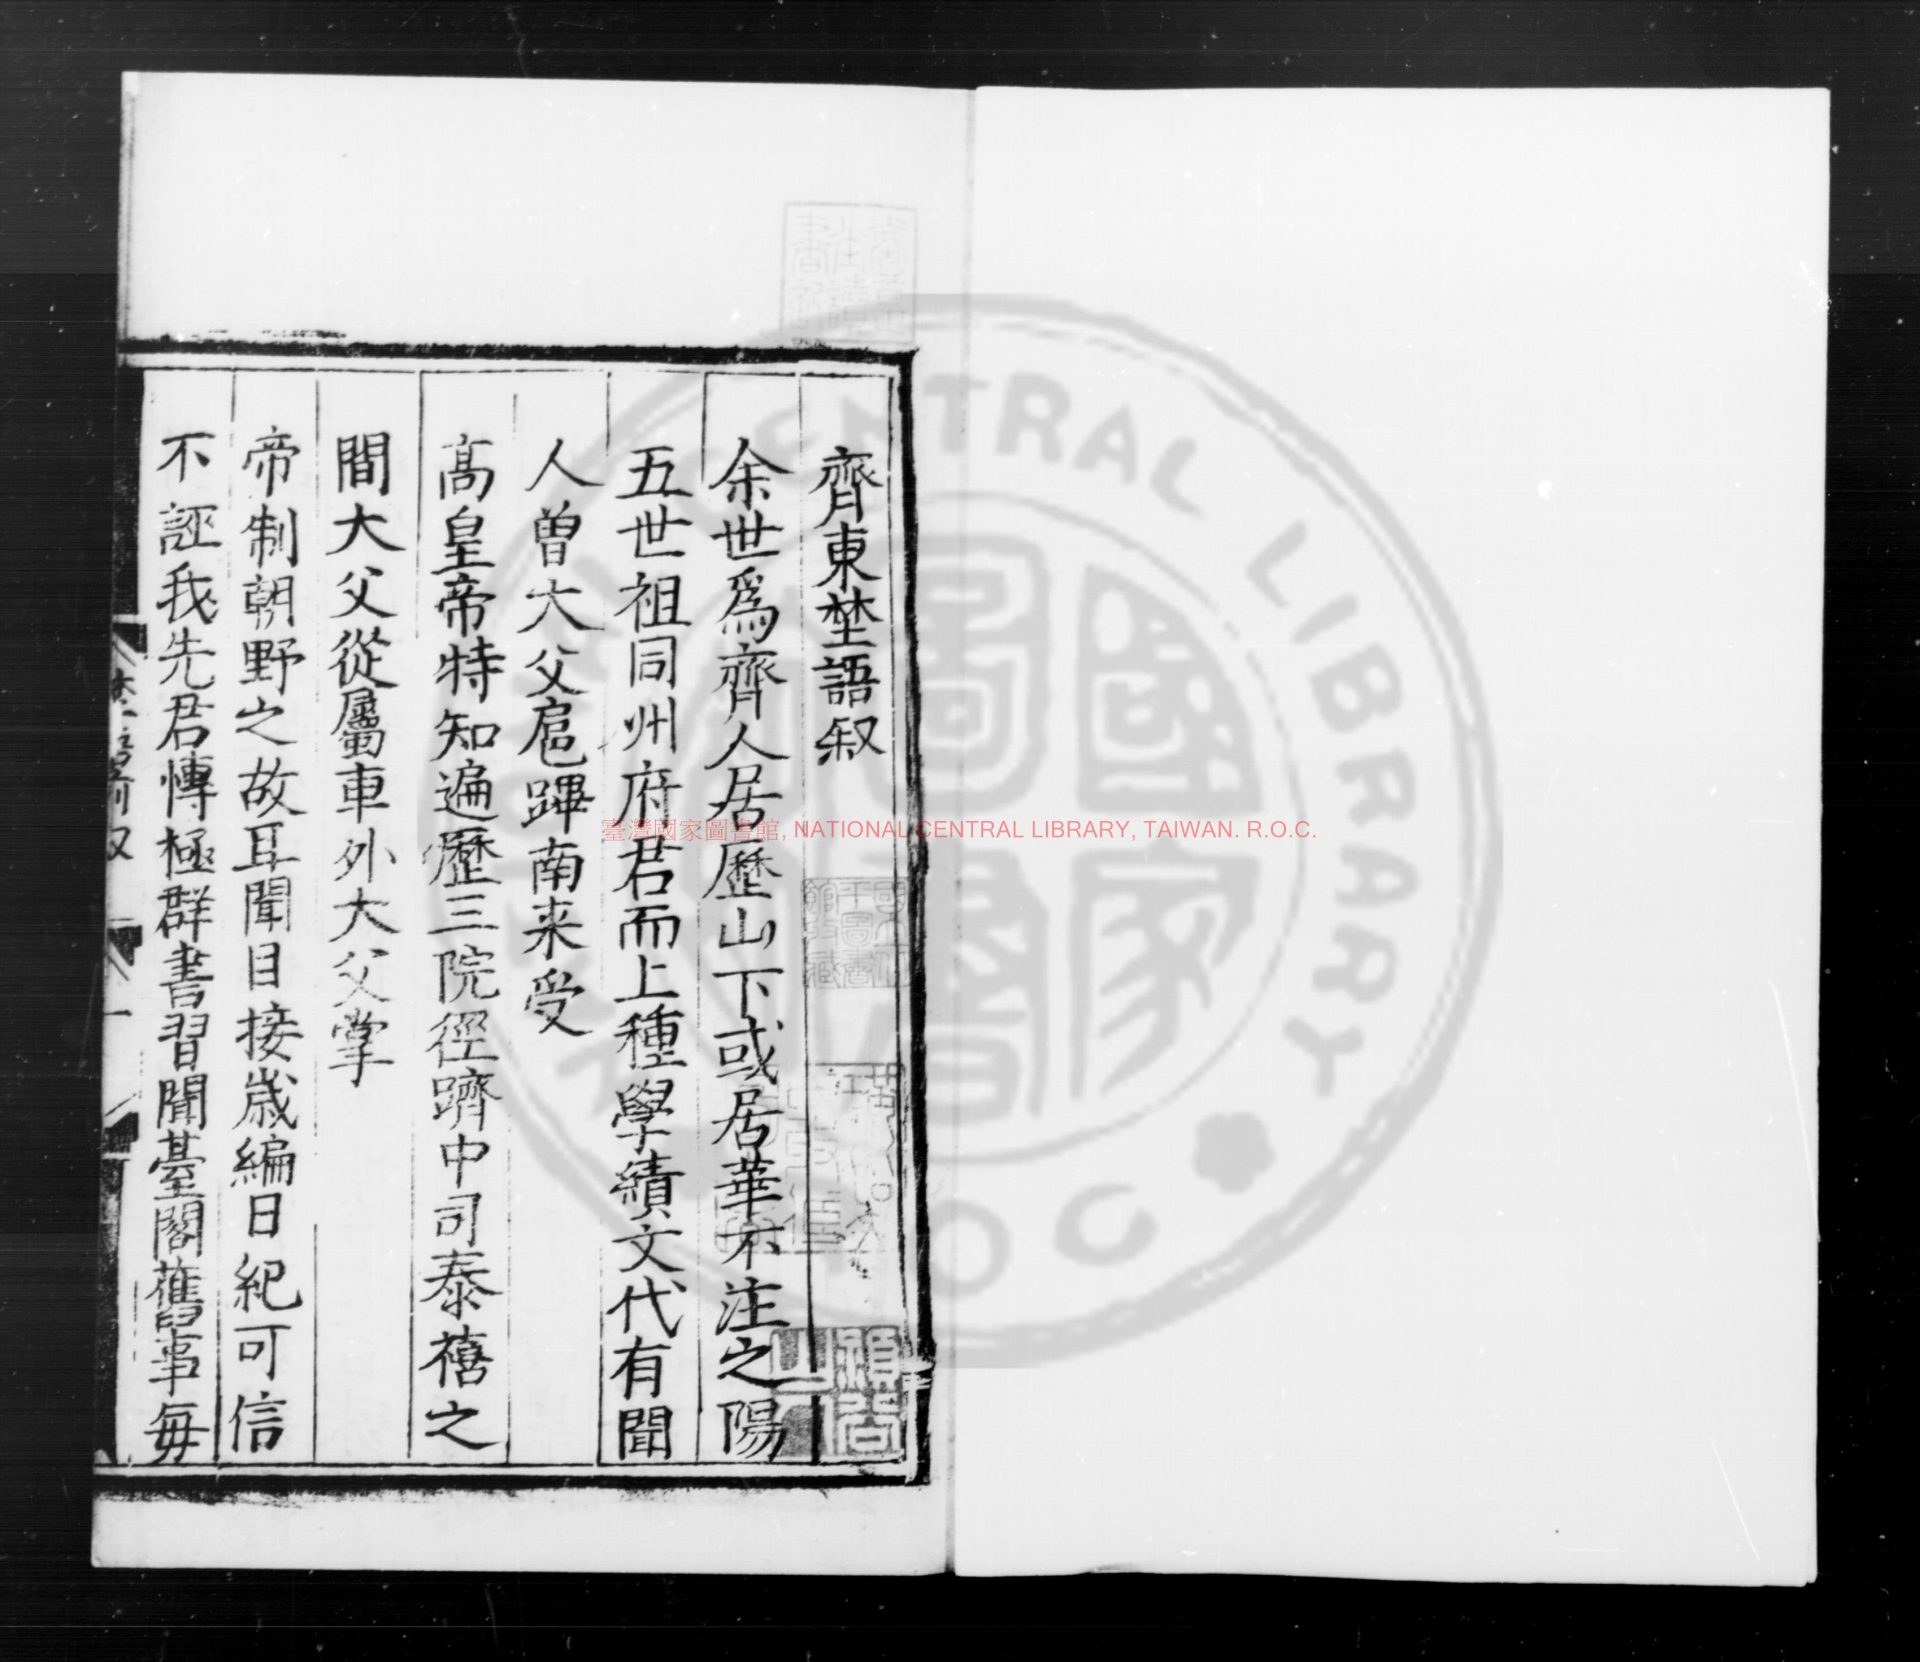 齊東埜語叙
余世爲齊人居歷山下或居華不注之陽
五世祖同州府君而上種學績文代有聞
人曾大父扈蹕南来受
髙皇帝特知遍歷三院徑躋中司泰禧之
間大父從屬車外大父掌
帝制朝野之故耳聞目接歳編日紀可信
不誣我先君博極群書習聞䑓閣舊事每
臺灣國家圖書館, NATIONAL CENTRAL LIBRARY, TAIWAN. R.O.C.
CENTRAL LIBRARY
國家圖書